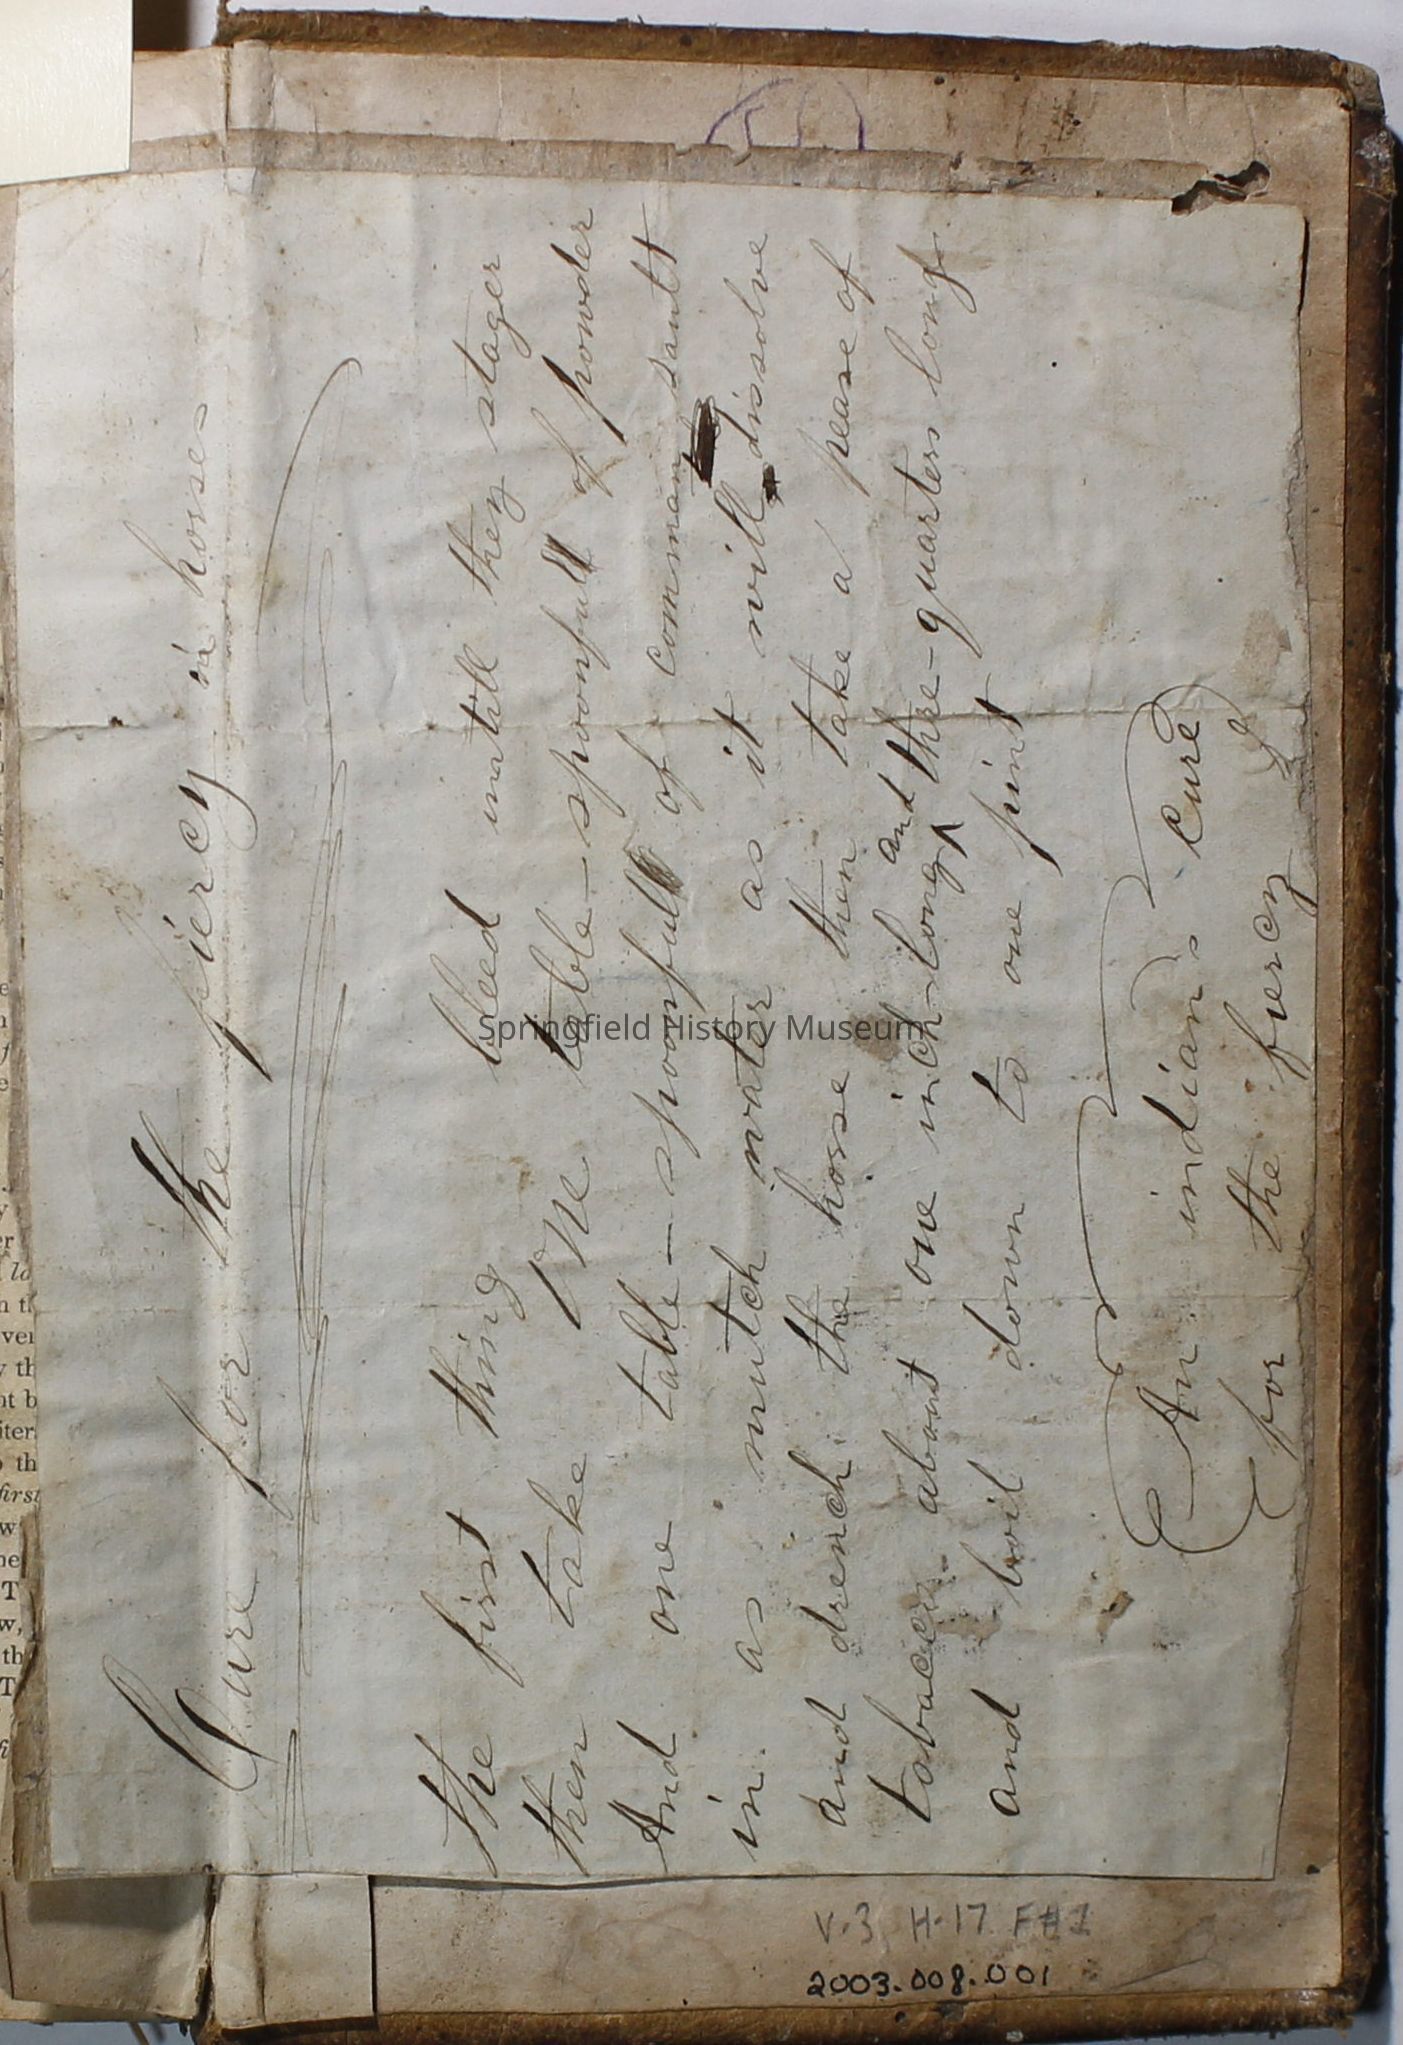 Cure for the fiercy in horses
the first thing bleed untill they stager
then take one table-spoonfull of powder
And one table-spoonfull of comman sault
in as mutch water as it will dissolve
and drench the horse then take a pease of
tobacco about one inch-long and thre-quarters long
and boil down to one pint
An indians cure
for the fiercy
V.3 H-17 F#1
2003.008.001
Springfield History Museum